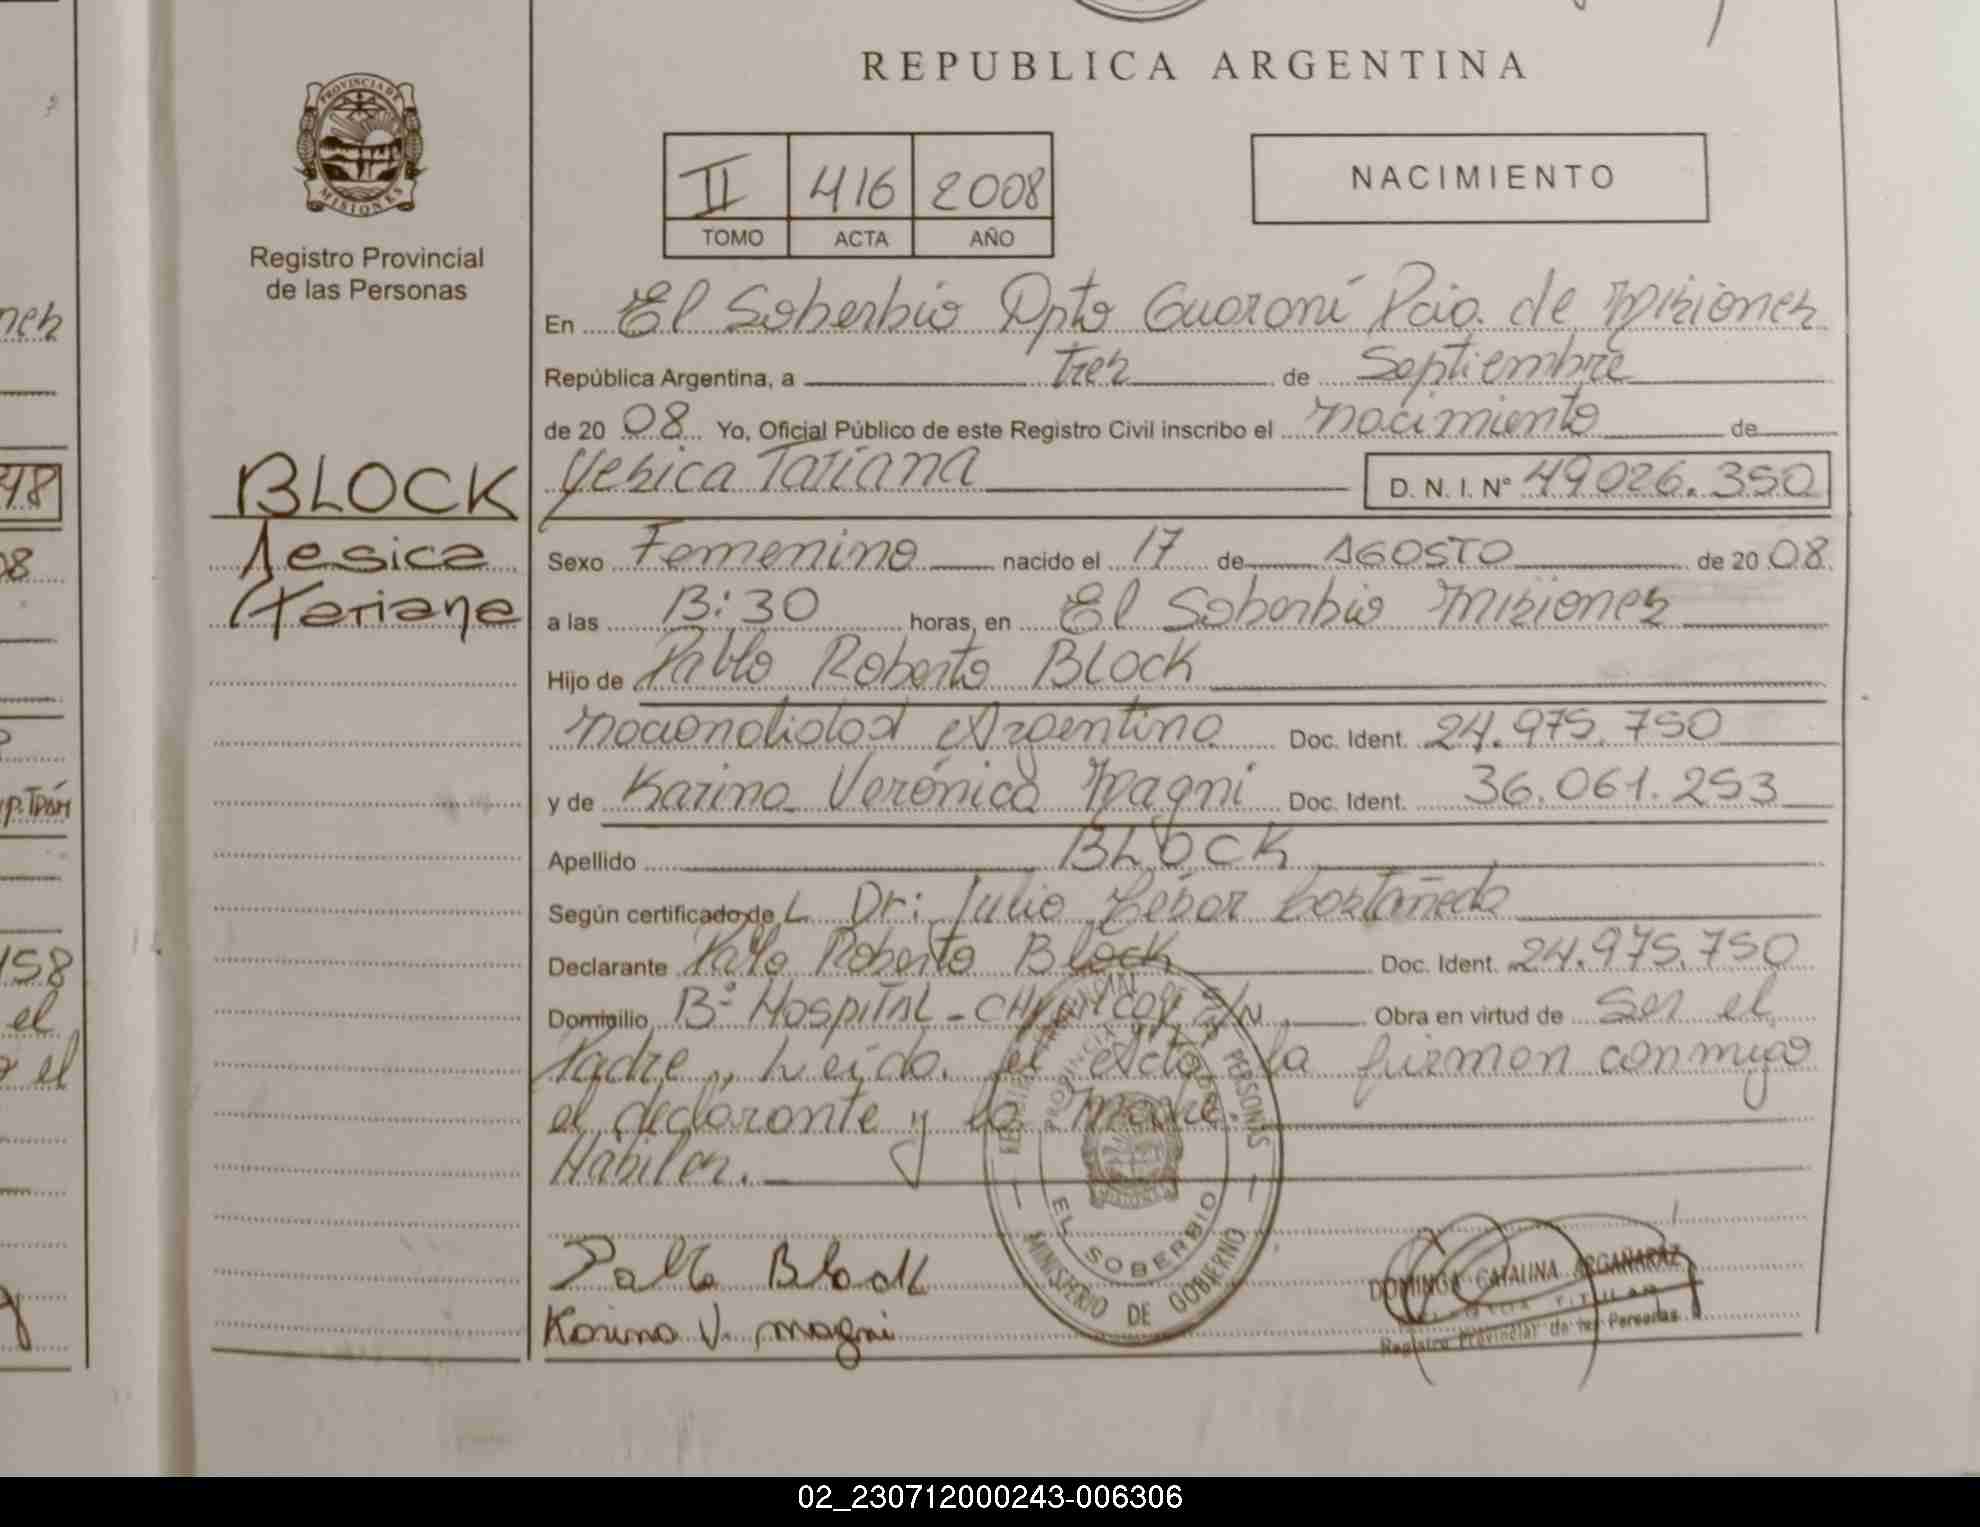 REPUBLICA ARGENTINA
PROVINCIA DE
MISIONES
Registro Provincial
de las Personas
II 416 2008
TOMO ACTA AÑO
NACIMIENTO
En El Soberbio Dpto Guaraní Pcia. de Misiones
República Argentina, a tres de Septiembre
de 2008 Yo, Oficial Público de este Registro Civil inscribo el nacimiento de
Yesica Tatiana D. N. I. Nº 49026.350
BLOCK
Yesica
Tatiana
Sexo Femenino nacido el 17 de AGOSTO de 2008
a las 13:30 horas, en El Soberbio Misiones
Hijo de Pablo Roberto BLOCK
nacionalidad Argentina Doc. Ident. 24.975.750
y de Karina Verónica Magni Doc. Ident. 36.061.253
Apellido BLOCK
Según certificado de L Dr: Julio César Castañeda
Declarante Pablo Roberto Block Doc. Ident. 24.975.750
Domicilio Bº HOSPITAL - S/N Obra en virtud de Ser el
Padre, Leída el Acta la firman conmigo
el declarante y la Madre
Habiles.
REGISTRO PROVINCIAL DE LAS PERSONAS
PROVINCIA DE
EL SOBERBIO
MINISTERIO DE GOBIERNO
Pablo Block
Karina V. magni
DOMINGA CATALINA ARGAÑARAZ
TITULAR
Registro Provincial de las Personas
48
08
158
el
el
02_230712000243-006306